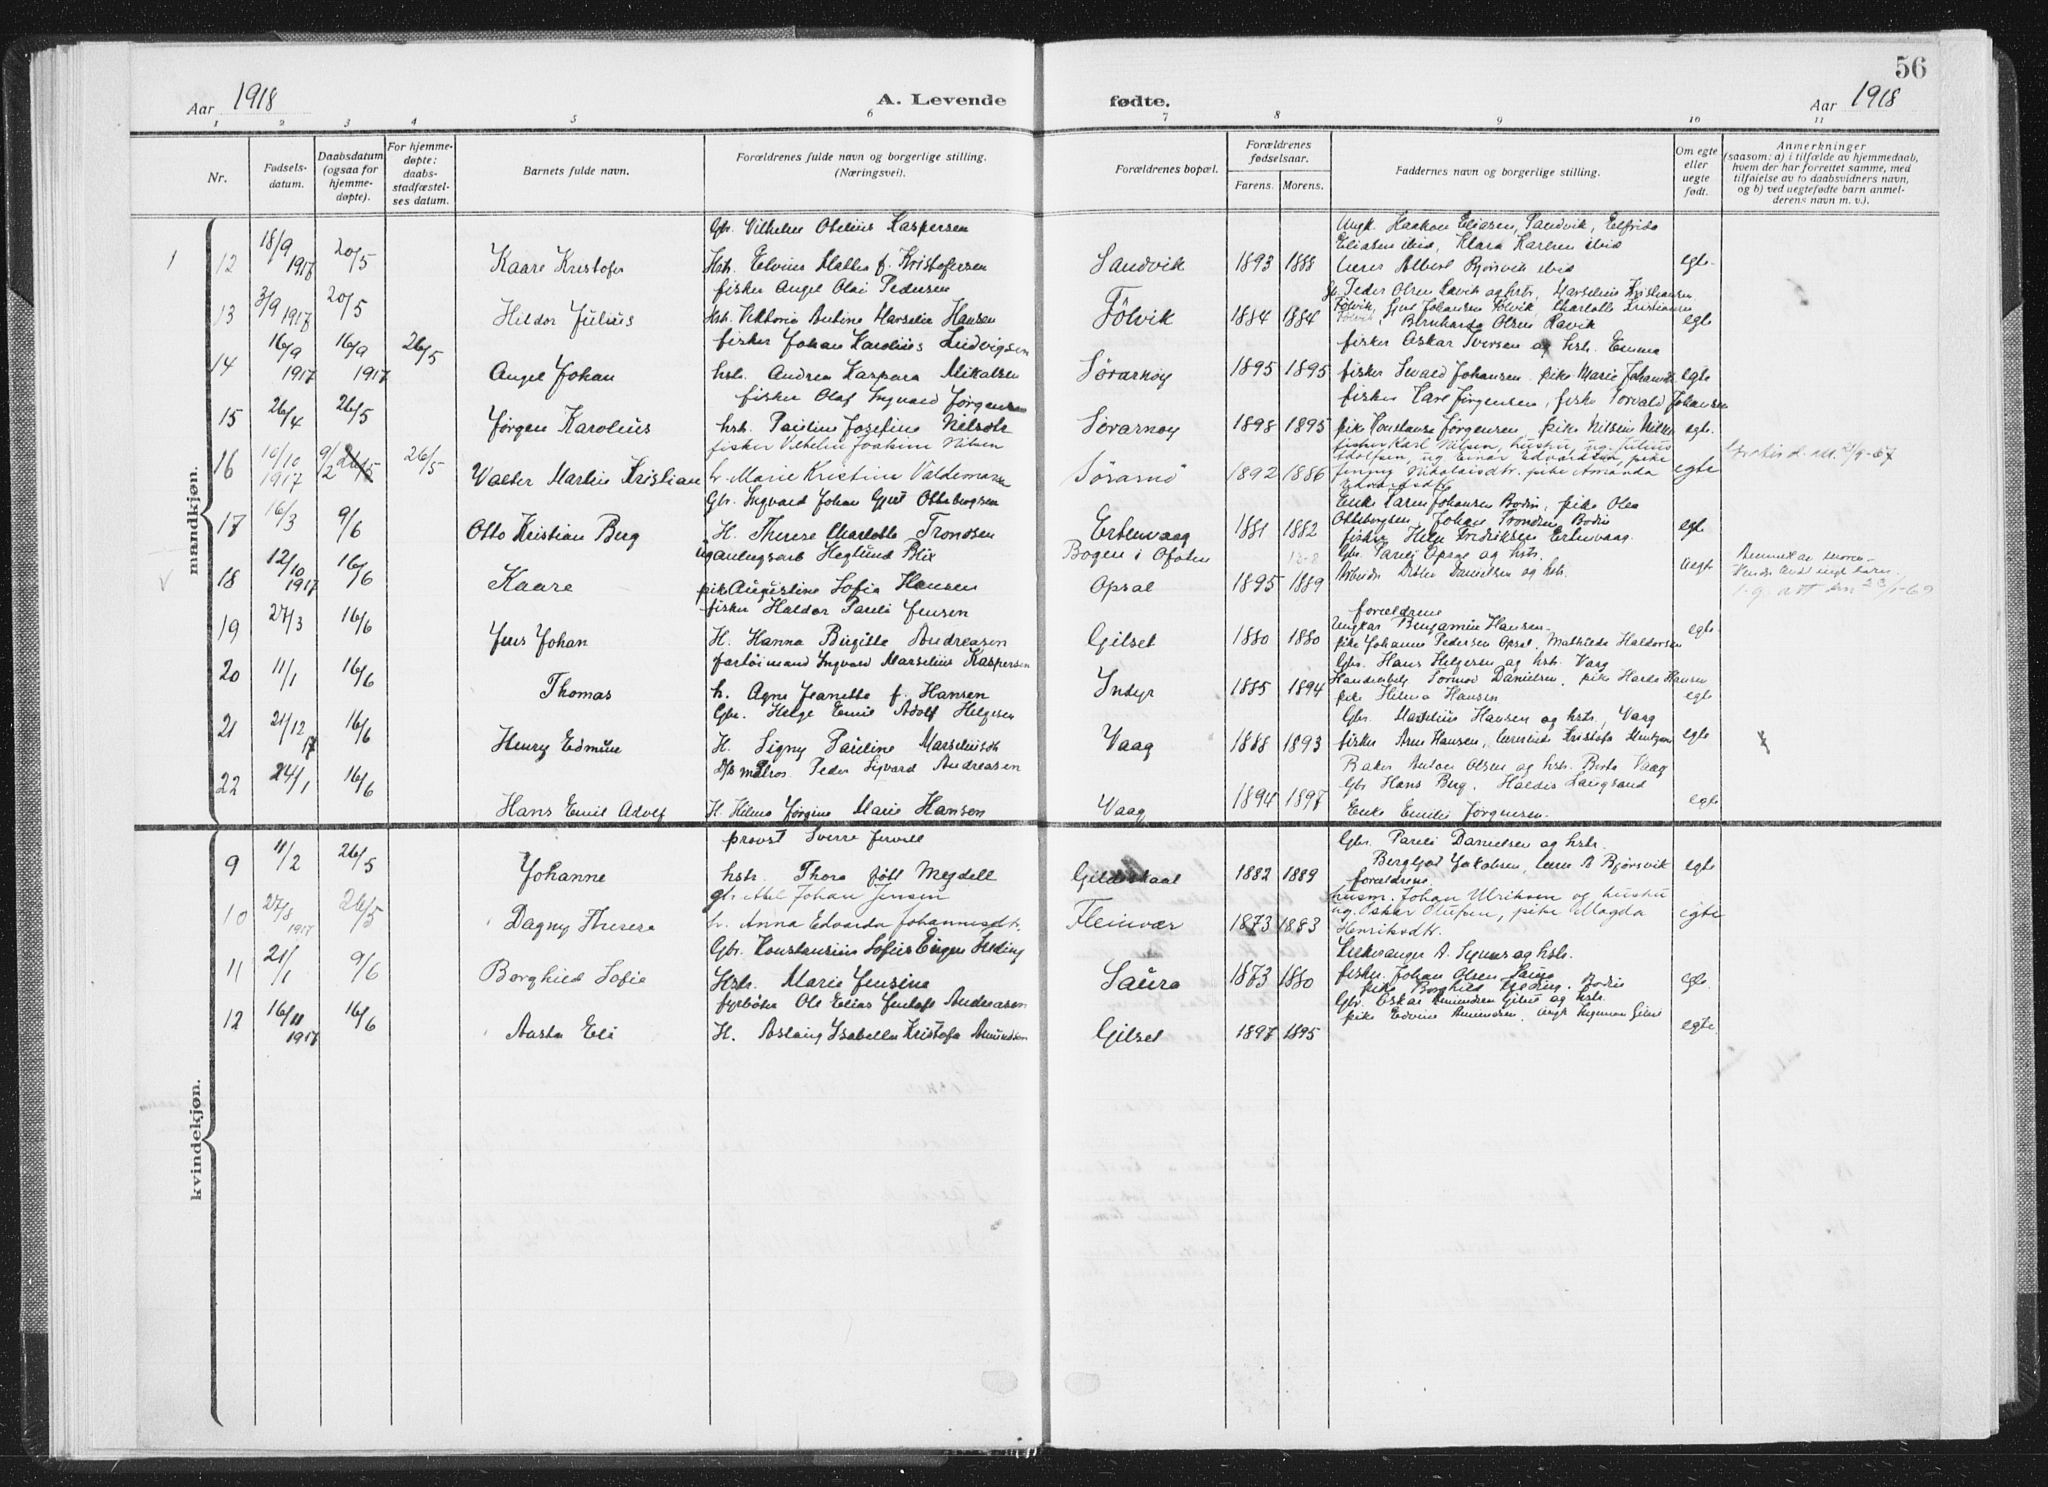 56
Aar 1918
A. Levende fødte.
Aar 1918
1 2 3 4 5 6 7 8 9 10 11
Nr.
Fødsels-datum.
Daabsdatum (ogsaa for hjemme-døpte).
For hjemme-døpte: daabs-stadfæstel-ses datum.
Barnets fulde navn.
Forældrenes fulde navn og borgerlige stilling. (Næringsvei).
Forældrenes bopæl.
Forældrenes fødselsaar.
Farens. Morens.
Faddernes navn og borgerlige stilling.
Om egte eller uegte født.
Anmerkninger
(saasom: a) i tilfælde av hjemmedaab, hvem der har forrettet samme, med tilføielse av to daabsvidners navn, og b) ved uegtefødte barn anmel-derens navn m. v.).
mandkjøn.
Gbr. Vilhelm Otelius Kaspersen
Ungk. Haakon Eliasen, Sandvik, Elfrida
1 12 18/9 1917 20/5 Kaare Kristofer Hstr. Elvine Hallea f. Kristofersen Sandvik 1893 1888 egte.
fisker Angel Olai Pedersen
13 3/9 1917 20/5 Hildor Julius Hstr. Viktoria Antine Marselie Hansen Fölvik 1884 1884 Bernharda Olsen Ravik egte
fisker Johan Karolius Ludvigsen
fisker Oskar Iversen og hstr. Emma
14 16/9 1917 16/9 1917 26/5 Angel Johan hstr. Andrea Kaspara Mikalsen Sörarnöy 1895 1895 fisker Sevald Johansen. pike Marie Johansen egte
fisker Olaf Ingvard Jørgensen
fisker Karl Jørgensen, fisker Torvald Johansen
15 26/4 26/5 Jørgen Karolius hstr. Pauline Josefine Nilsdtr Sörarnöy 1898 1895 pike Konstanse Jørgensen, pike Nilsen egte.
fisker Vilhelm Joakim Nilsen
fisker Karl Nilsen, hustru, ug. Julius
16 10/10 1917 9/2 26/5 26/5 Valter Martin Kristian h. Marie Kristine Valdemarsen Sörarnö 1892 1886 Adolfsen, ug Einar Edvardsen, pike Jenny Nikolaisdtr. pike Amanda Edvardsdtr egte
Gbr. Ingvard Johan Gjert Ottebergsen
Enke Karen Johansen Bodin, pike Olea
17 16/3 9/6 Otto Kristian Berg H. Therese Charlotte Trondsen Ertenvaag 1881 1882 Ottebergsen, Johan Trondsen Bodin egte
fisker Fredriksen Ertenvaag.
Ug anlegsarb Heglund Blix Bogen i Ofoten Gbr. Pareli Opsal og hstr.
18 12/10 1917 16/6 Kaare pike Augustine Sofie Hansen Opsal 1895 1889 Arbeider Danielsen og hstr. uegte
fisker Haldor Pareli Jensen
forældrene
Ungkar Benjamin Hansen
19 27/3 16/6 Jens Johan H. Hanna Birgitte Andreasen Gilset 1880 1880 pike Johanne Pedersen Opsal, Mathilde Haldorsen egte
fartöimand Ingvard Marselius Kaspersen
Gbr. Hans Helgesen og hstr. Vaag
20 11/1 16/6 Thomas h. Agne Jeanette f. Hansen Indyr 1885 1894 Danielsen, pike Harda Hansen
pike Helma Hansen egte
Gbr. Helge Emil Adolf Helgesen
Gbr. Marselius Hansen og hstr, Vaag
21 21/12 17 16/6 Henry Edmun H. Signy Pauline Marseliusdtr Vaag 1888 1893 fisker Arne Hansen, egte
matros Peder Sigvard Andreasen
Baker Anton Olsen og hstr. Berta Vaag
22 24/1 16/6 Hans Emil Adolf H. Hilma Jørgine Marie Hansen Vaag 1894 1897 Gbr Hans Berg, Haldis Langsand
Enke Emilie Jørgensen. egte
kvindekjøn.
provst Sverre Jervell
Gbr. Pareli Danielsen og hstr.
9 11/2 26/5 Johanne hstr. Thora født Mejdell Gildeskaal 1882 1889 Bergljot Jakobsen, lærer A Bjørsvik egte
forældrene
gbr Johan Jensen
husm. Johan Ulriksen og hustru
10 27/8 1917 26/5 Dagny Therese h. Anna Edvarda Johannesdtr. Fleinvær 1873 1883 ug. Oskar Olufsen, pike Magda Henriksdtr. egte
Gbr. Konstansius Sofus Eugen Heding
Kirkesanger A. og hstr.
11 21/1 9/6 Borghild Sofie Hstr. Marie Jensine Saura 1873 1880 fisker Johan Olsen Saura
pike Borghild Heding. Bodin egte.
fyrböter Ole Elias Andreasen
Gbr. Oskar Amundsen Gilset og hstr.
12 16/11 1917 16/6 Aasta Eli H. Aslaug Isabella Kristofa Amundsen Gilset 1897 1895 pike Edvine Amundsen, ungk Ingeman Gilset egte